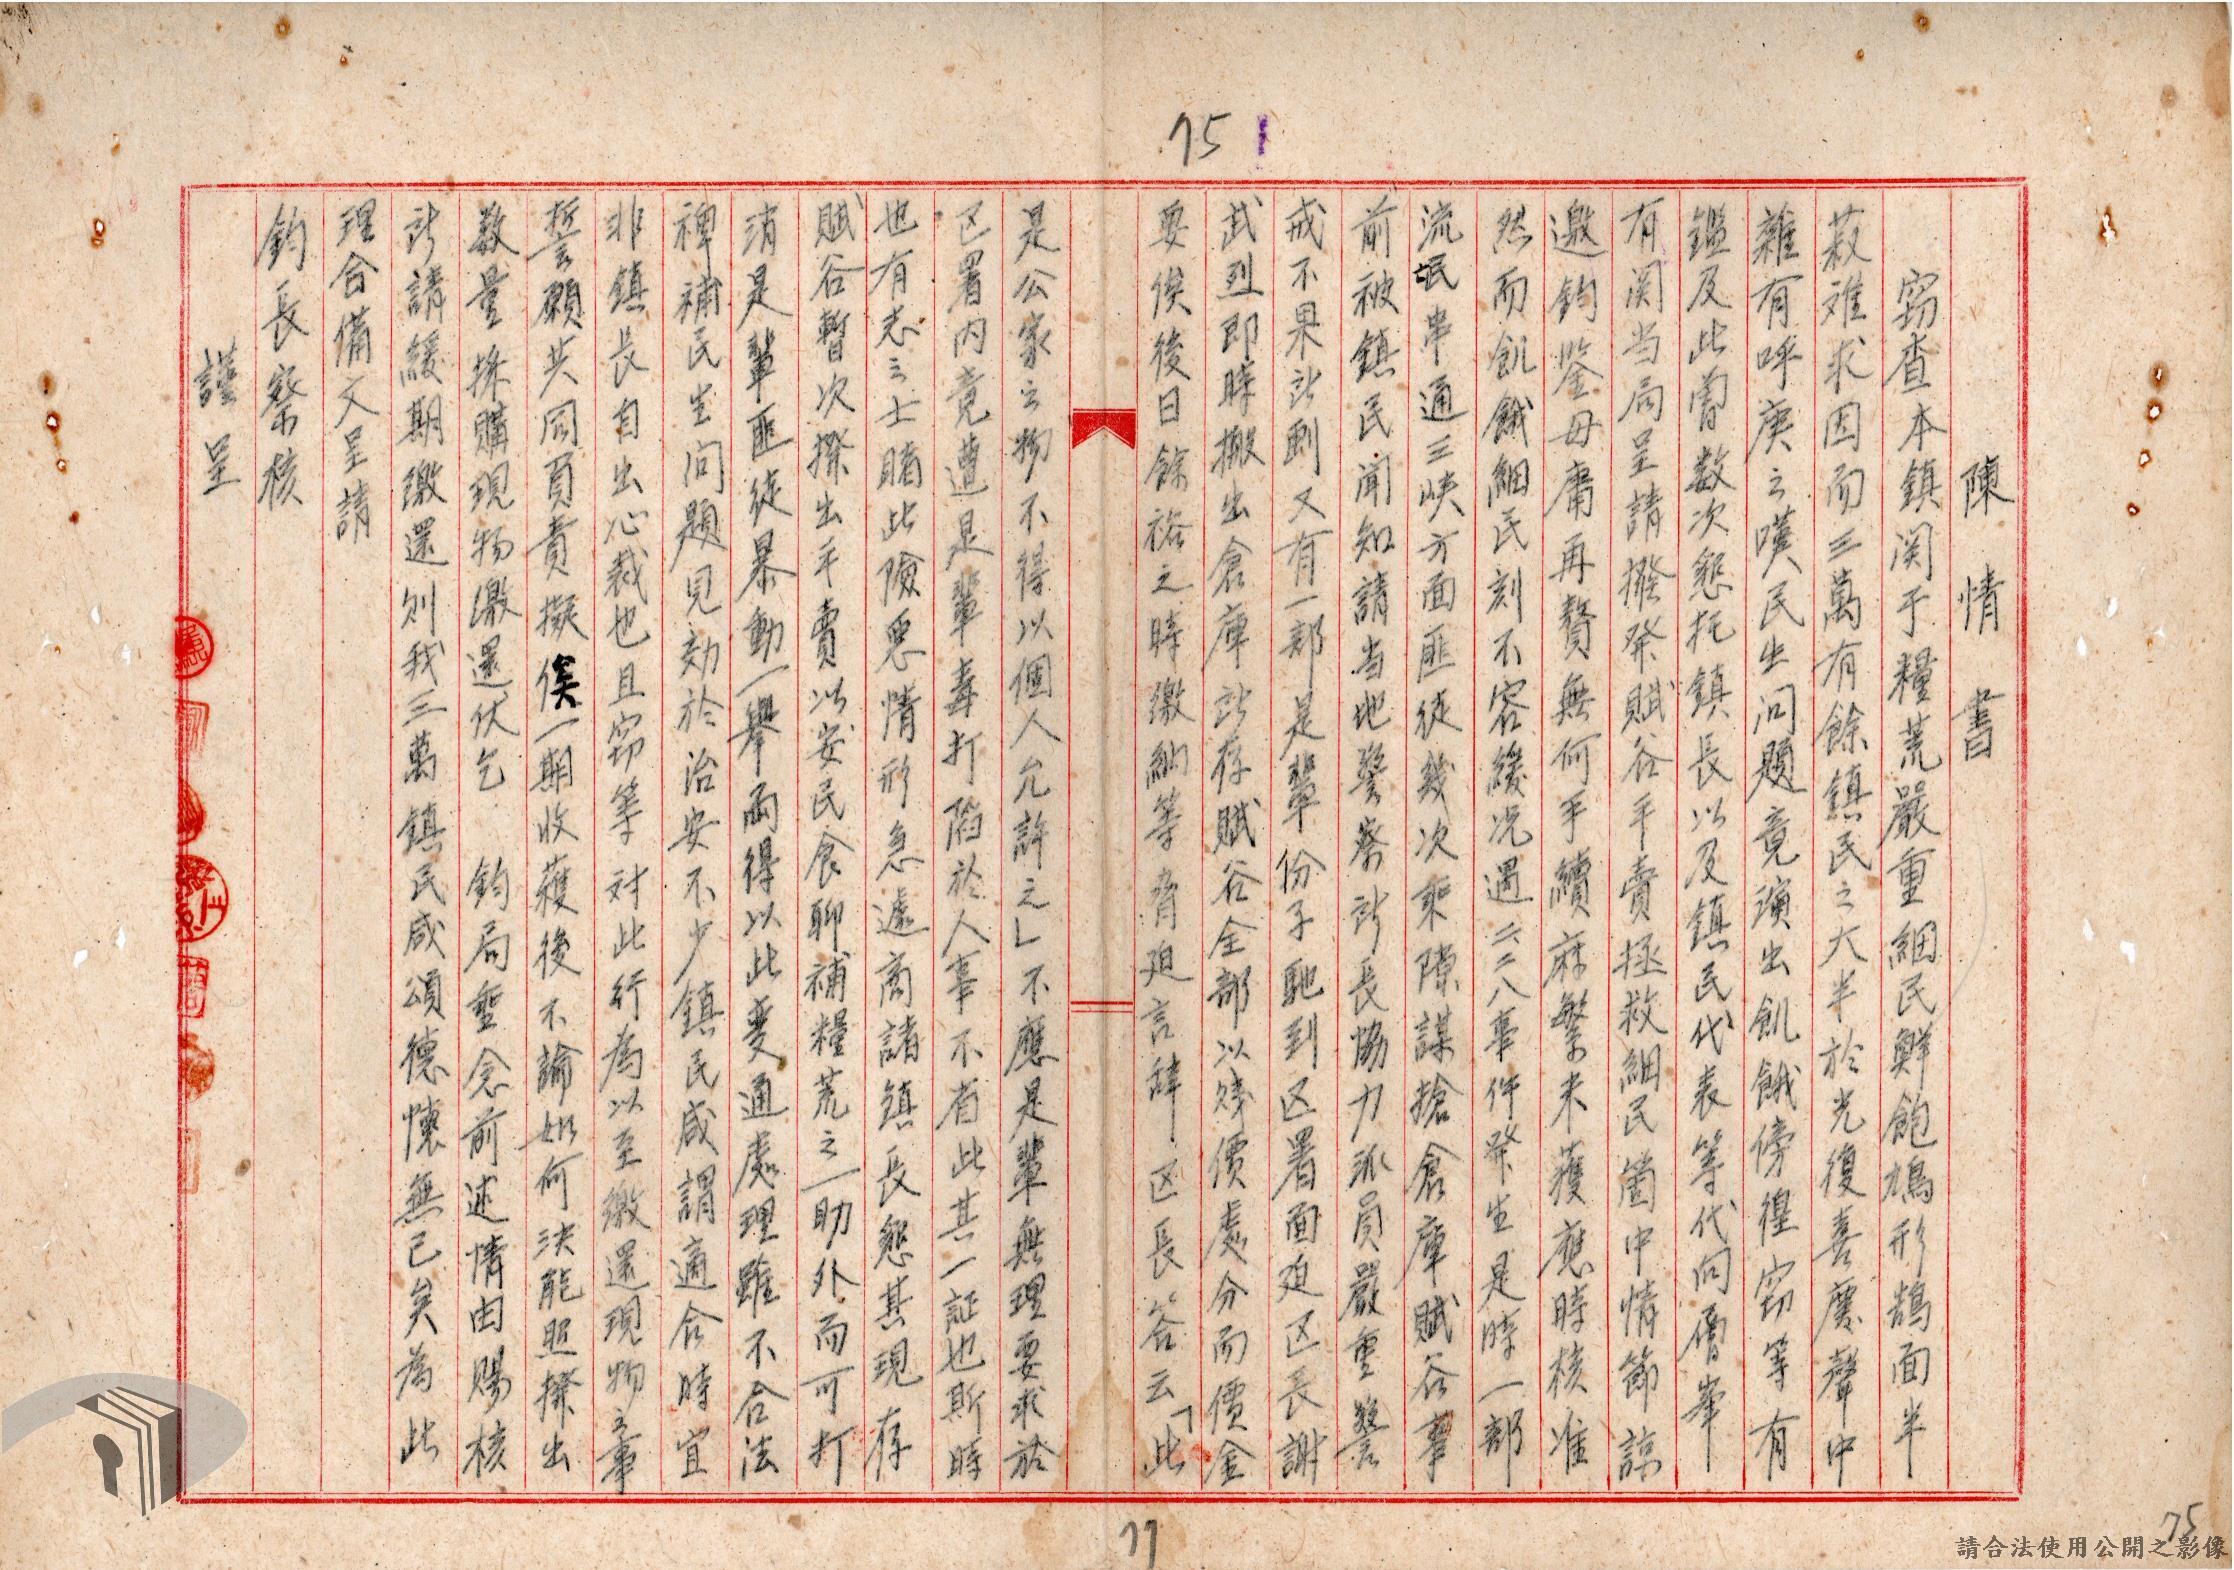 75
陳情書
竊查本鎮関于糧荒嚴重細民鮮飽鳩形鵠面半
菽难求因而三萬有餘鎮民之大半於光復喜慶聲中
雖有呼庚之嘆民生问題竟演出飢餓傍徨窃等有
鑑及此曾数次懇托鎮長以及鎮民代表等代向層峯
有関当局呈請撥發賦谷平賣拯救細民箇中情節諒
邀鈞鉴毋庸再贅無何手續麻繁未獲應時核准
然而飢餓細民刻不容緩况遇二二八事件發生是時一部
流氓串通三峽方面匪徒幾次乘隙謀搶倉庫賦谷事
前被鎮民闻知請当地警察所長協力派員嚴重警
戒不果所劃又有一部是輩份子馳到区署面迫区長謝
武烈即時搬出倉庫所存賦谷全部以賤價處分而價金
要俟後日餘裕之時繳納等脅廹言辞区長答云「此
是公家之物不得以個人允許之」不應是輩無理要求於
区署内竟遭是輩毒打陷於人事不省此其一証也斯時
也有志之士睹此險惡情形急遽商諸鎮長懇其現存
賦谷暫次撥出平賣以安民食聊補糧荒之一助外而可打
消是輩匪徒暴動一舉両得以此变通處理雖不合法
裨補民生问題見効於治安不少鎮民咸謂適合時宜
非鎮長自出心裁也且窃等对此行為以至繳還現物之事
誓願共同負責擬俟一期收穫後不論如何決能照撥出
数量採購現物繳還伏乞　鈞局垂念前述情由賜核
所請緩期繳還則我三萬鎮民咸頌德懷無已矣為此
理合備文呈請
鈞長察核
謹呈
77
75
請合法使用公開之影像